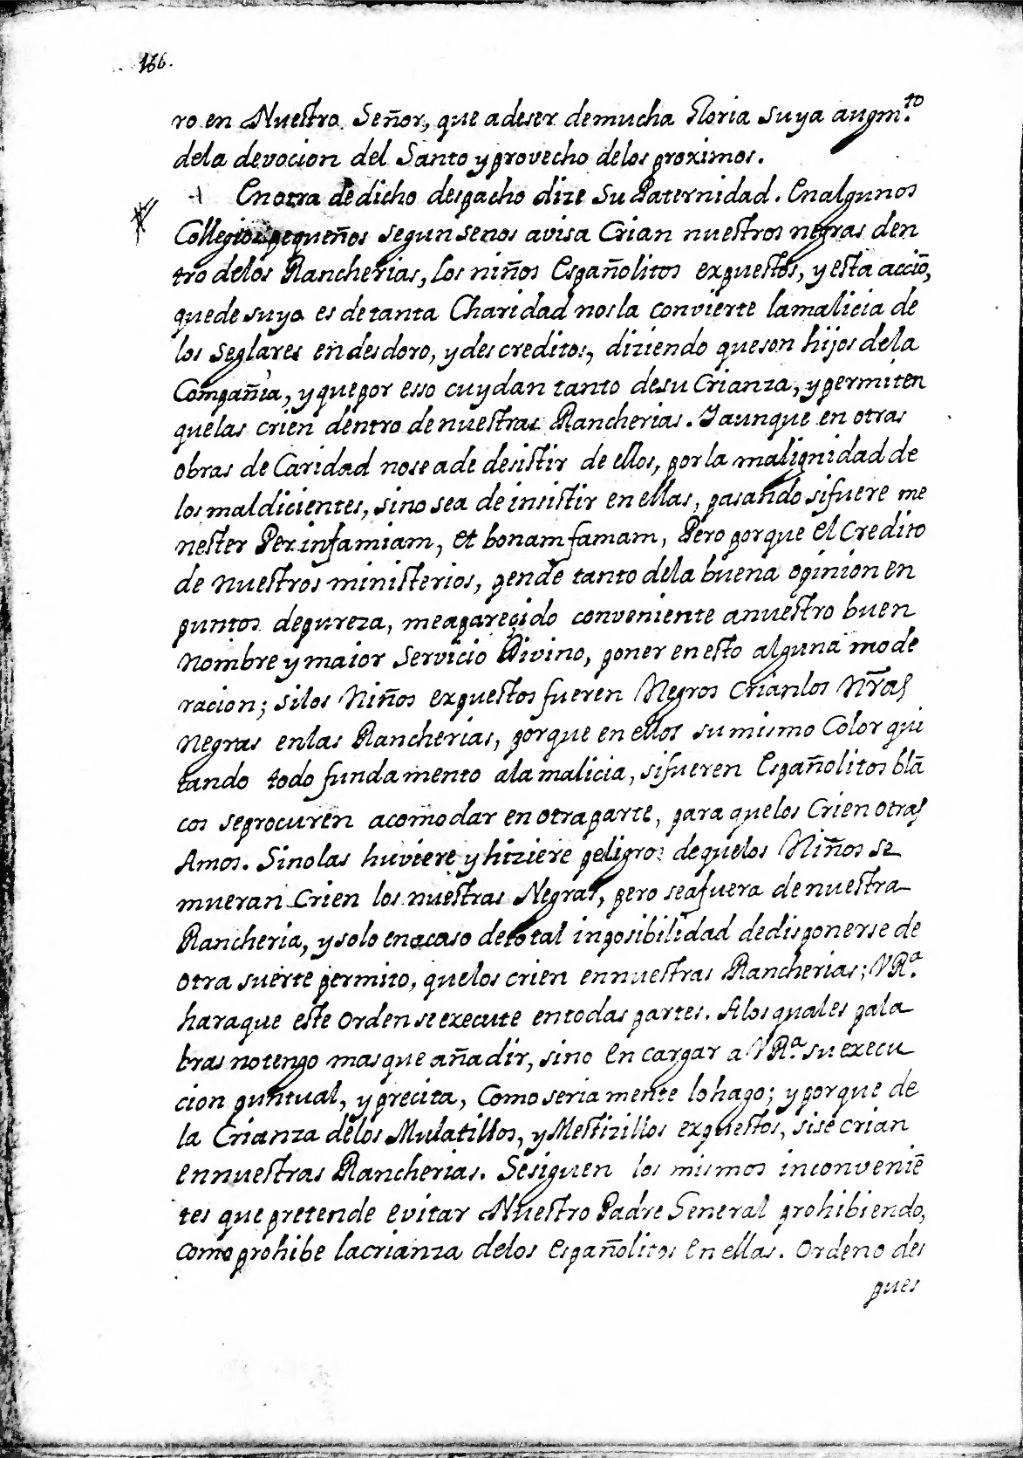 166.
ro en Nuestro Señor, que adeser demucha Gloria suya augm.to
dela devocion del Santo y provecho delos proximos.
En otra de dicho despacho dize Su Paternidad. En algunos
Collegios pequeños segun senos avisa Crian nuestros negras den
tro delos Rancherias, Los niños Españolitos expuestos, y esta acciō,
quede suyo es de tanta Charidad nosla convierte lamalicia de
los seglares en desdoro, y descreditos, diziendo queson hijos dela
Compañia, y quepor esso cuydan tanto desu Crianza, y permiten
quelas crien dentro de nuestras Rancherias. Y aunque en otras
obras de Caridad nose ade desistir de ellos, por la malignidad de
los maldicientes, sino sea de insistir en ellas, pasando sifuere me
nester Per infamiam, et bonam famam, Pero porque el Credito
de nuestros ministerios, pende tanto dela buena opinion en
puntos depureza, meapareçido conveniente anuestro buen
Nombre y maior Servicio Divino, poner en esto alguna mode
racion; silos Niños expuestos fueren Negros crianlos Nr̄as
Negras enlas Rancherias, porque en ellos su mismo Color qui
tando todo fundamento ala malicia, sifueren Españolitos blā
cos seprocuren acomodar en otra parte, para quelos Crien otras
Amos. Sinolas huviere y hiziere peligro: dequelos Niños se
mueran Crien los nuestras Negras, pero seafuera de nuestra
Rancheria, y solo en acaso detotal inposibilidad dedisponerse de
otra suerte permito, quelos crien en nuestras Rancherias; VR.a
haraque este orden se execute en todas partes. Alos quales pala
bras notengo mas que añadir, sino encargar a VR.a su execu
cion puntual, y precita, Como seria mente lo hago; y porque de
la Crianza delos Mulatillos, y Mestizillos expuestos, sise crian
en nuestras Rancherias. Se siguen los mismos inconveniē
tes que pretende evitar Nuestro Padre General prohibiendo,
como prohibe lacrianza delos españolitos en ellas. Ordeno des
pues